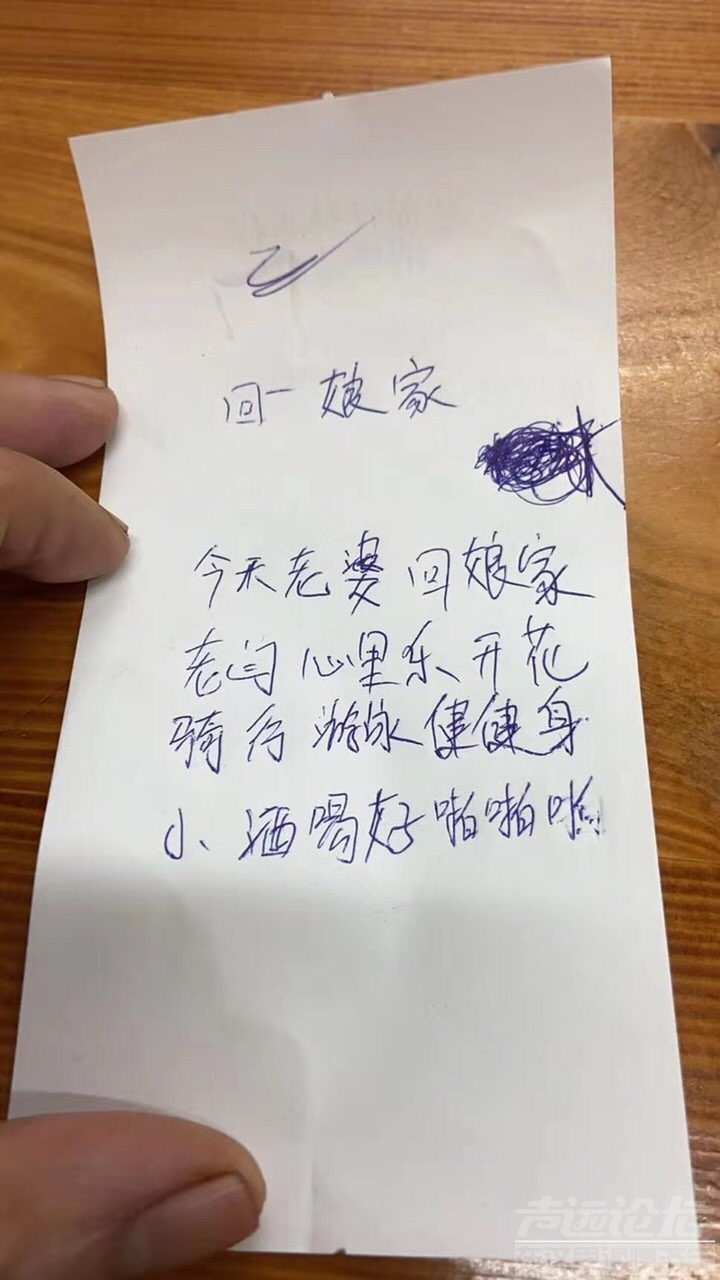 回一娘家
今天老婆回娘家
老闫心里乐开花
骑行游泳健健身
小酒喝好啪啪啪
声远论坛